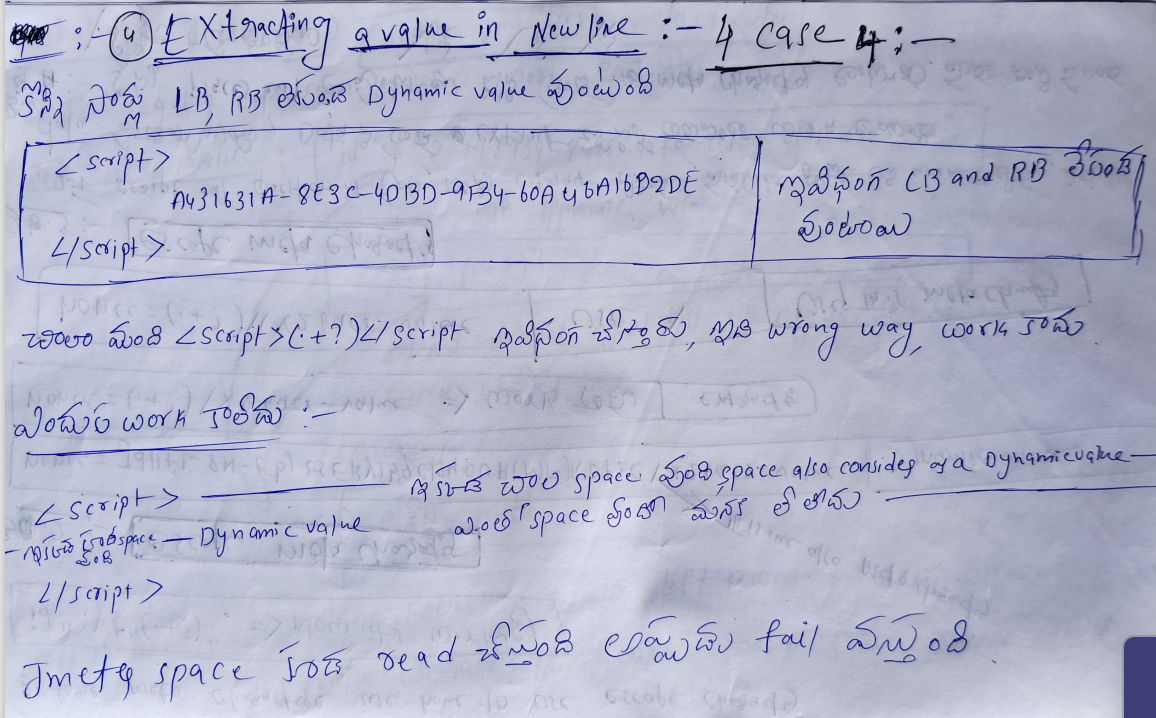 :- (4) Extracting a value in New line :- 4 case 4:-
కొన్ని సార్లు LB, RB లేకుండ Dynamic value వుంటుంది
<script>
A431631A-8E3C-4DBD-9F34-60A46A16B2DE
</script>
ఇవిధంగ LB and RB లేకుండ
వుంటాయి
చాలా మంది <script>(.+?)</script ఇవిధంగ చేస్తారు, ఇది wrong way, work కాదు
ఎందుకు work కాలేదు :-
<script> ఇక్కడ చాల space వుంది space also consider as a Dynamic value
- ఇక్కడ చాల space వుంది - Dynamic value ఎంత space వుందో మనకి తెలీదు
</script>
Jmeter space కూడ read చేస్తుంది అప్పుడు fail వస్తుంది.